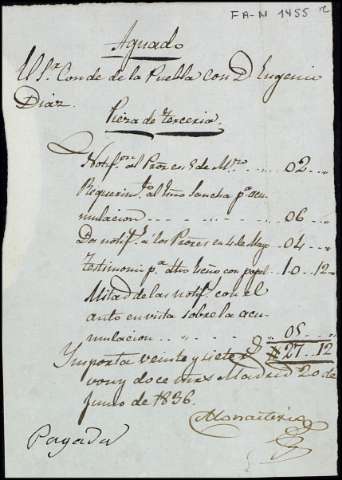 FA-N 1455
Aguado
El Sr. Conde de la Puebla con D. Eugenio
Diaz.
Pieza de terceria.
Notifon. al Pror. en 8 de Mzo .. 02
Requerim.to al Esno Sancha pa. acu-
mulacion .. 06
Dos notifs. a los Prores en 4 de Mayo 04
Testimonio pa. dho Esno con papel 10..12
Mitad de las notifs. con el
auto en vista sobre la acu-
mulacion .. 05
27..12
Importa veinte y siete rs.
von y doce mrs Madrid 20 de
Junio de 1836.
Pagada